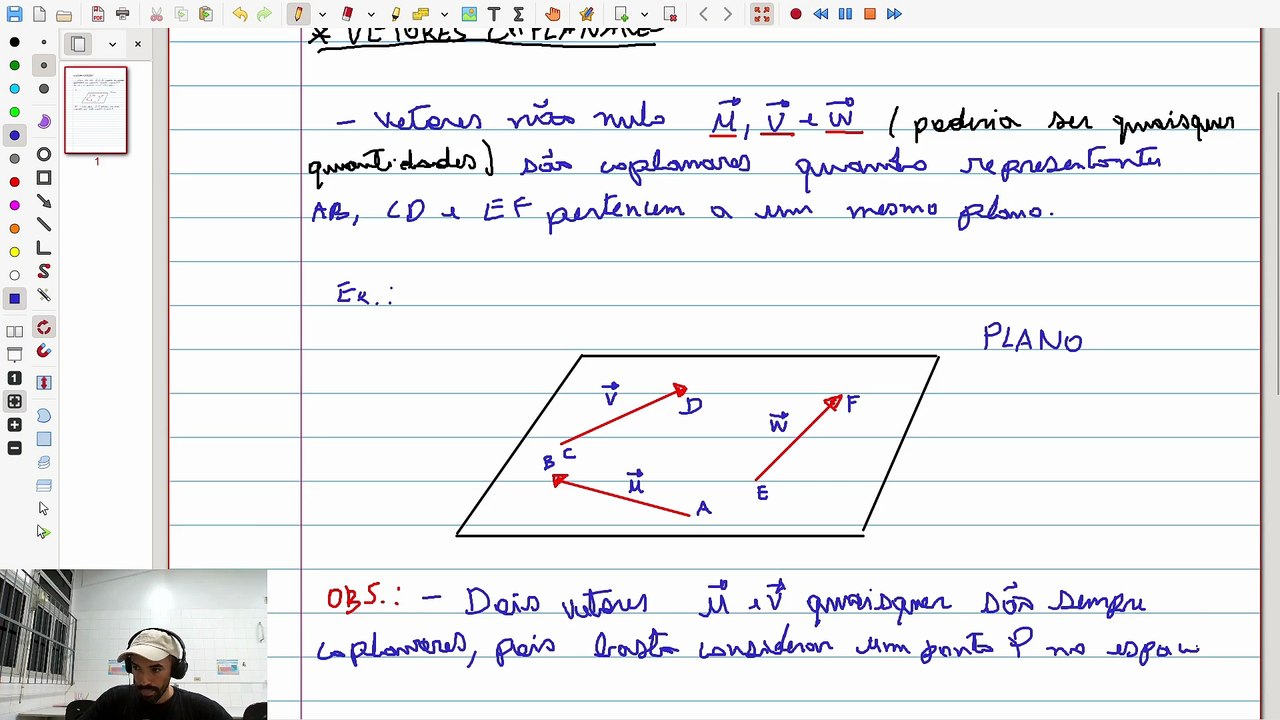 * VETORES COPLANARES
- Vetores não nulo u⃗, v⃗ e w⃗ (poderia ser quaisquer
quantidades) são coplanares quando representantes
AB, CD e EF pertencem a um mesmo plano.
Ex.:
PLANO
v⃗
D
w⃗
F
B C
u⃗
E
A
OBS.: - Dois vetores u⃗ e v⃗ quaisquer são sempre
coplanares, pois basta considerar um ponto P no espaç
1